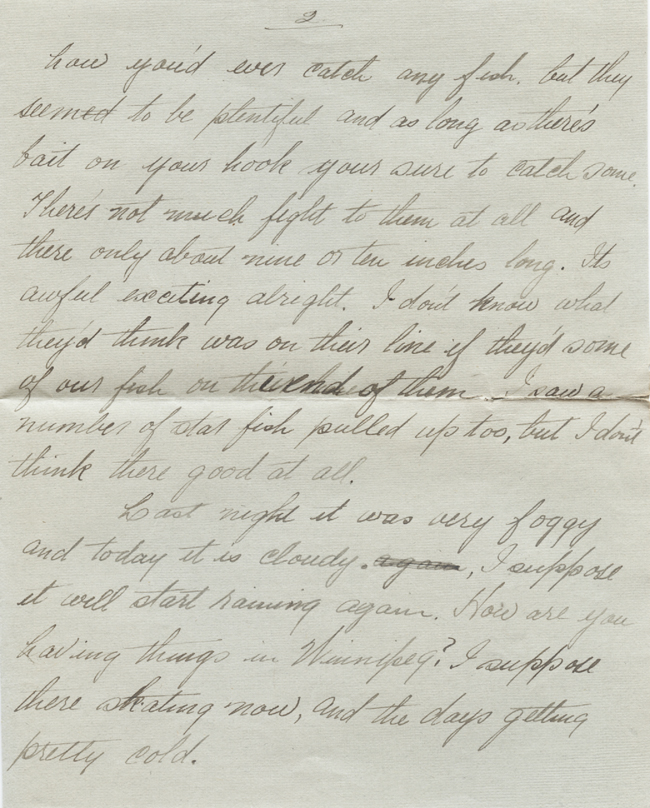 2
how you'd ever catch any fish. but they
seemed to be plentiful and as long as there's
bait on your hook your sure to catch some.
There's not much fight to them at all and
there only about nine or ten inches long. Its
awful exciting alright. I don't know what
they'd think was on their line if they'd some
of our fish on the end of them. I saw a
number of star fish pulled up too, but I don't
think there good at all.
Last night it was very foggy
and today it is cloudy. again, I suppose
it will start raining again. How are you
having things in Winnipeg? I suppose
there skating now, and the days getting
pretty cold.